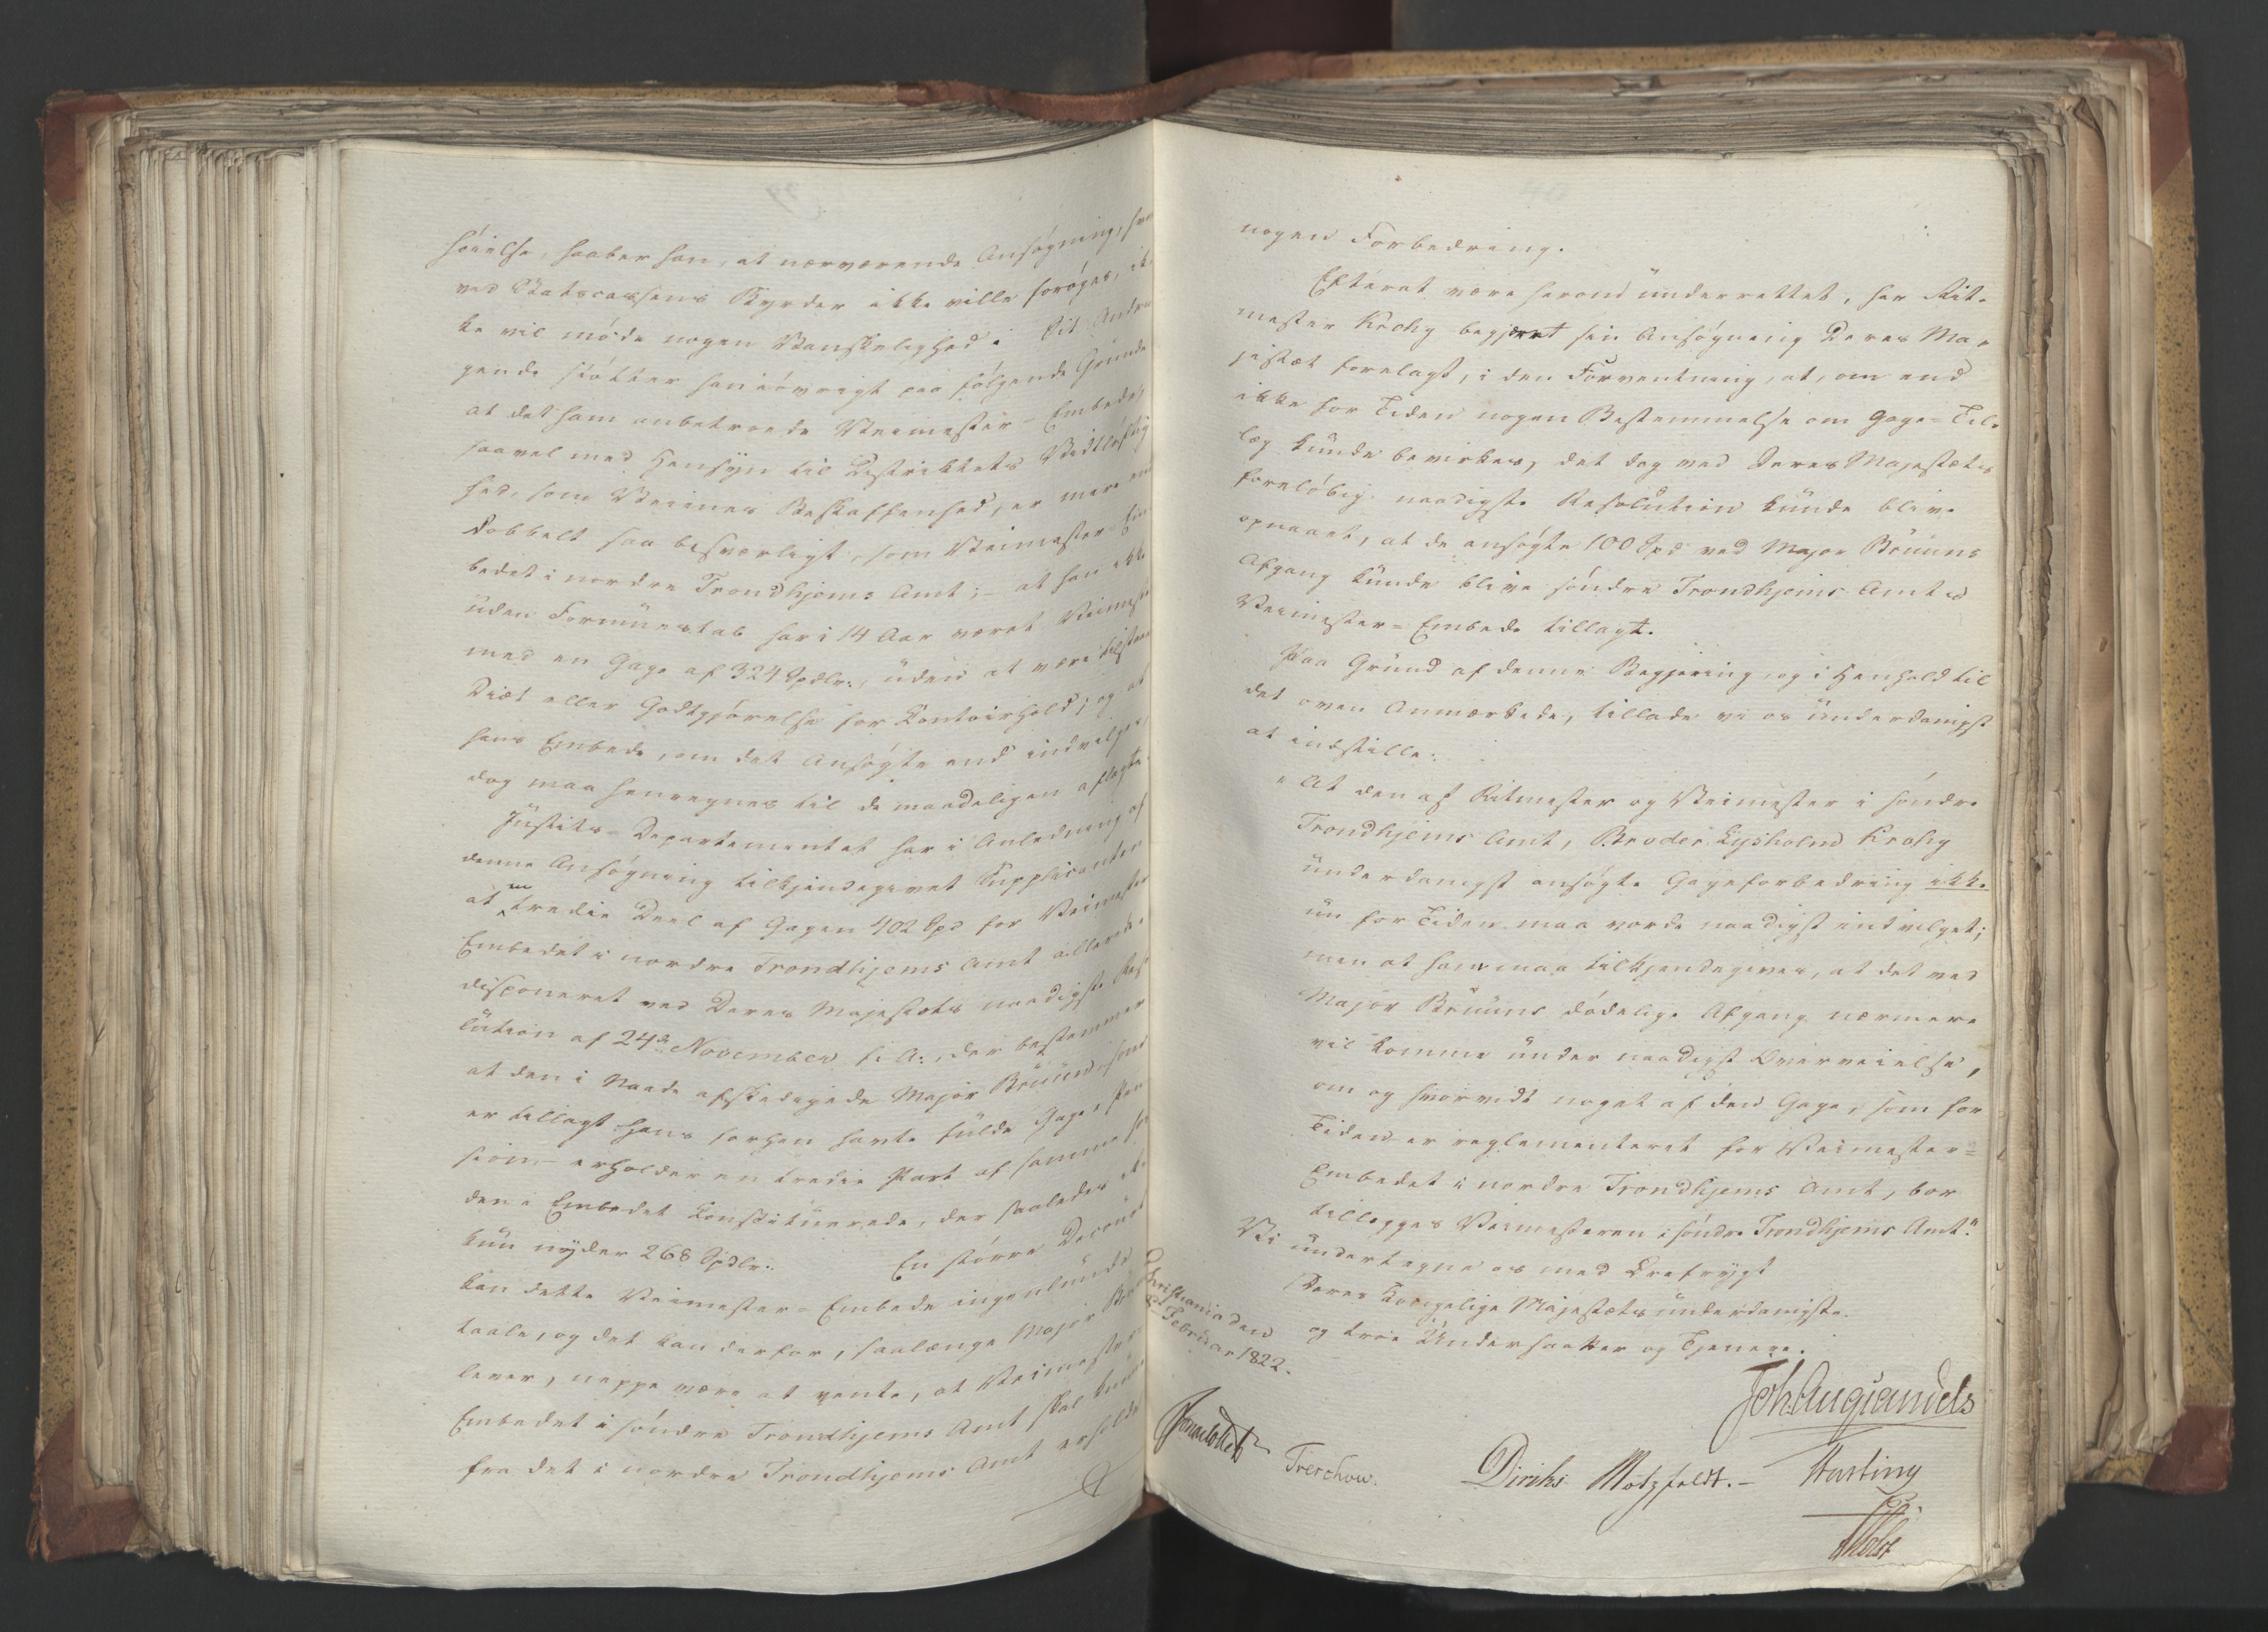 höielse, haaber han, at nærværende Ansøgning, hvor
ved Statscassens Byrder ikke ville forøges, ik-
ke vil møde nogen Vanskelighed. Sit Andra
gende støtter han iøvrigt paa følgende Grunde
at det ham anbetroede Veimester-Embede,
saavel med Hensyn til Districktets Vidtløftig
hed, som Veienes Beskaffenhed, er mere end
dobbelt saa besværligt, som Veimester-Em
bedet i nordre Trondhjems Amt; - at han ikke
uden Formuestab har i 14 Aar været Veimester
med en Gage af 324 Spdlr:, uden at være tilstaaet
Diæt eller Godtgjørelse for Contoirhold; og at
hans Embede, om det Ansøgte end indvilges,
dog maa henregnes til de maadeligen aflagte.
Justits-Departementet har i Anledning af
denne Ansøgning tilkjendegivet Supplicanten
at en tredie Deel af Gagen 402 Spd for Veimester
Embedet i nordre Trondhjems Amt allerede er
disponeret ved Deres Majestæts naadigste Reso
lution af 24de November f: A:, der bestemmer
at den i Naade afskedigede Major Bruun, som
er tillagt hans forhen havte fulde Gage i Pen
sion, - erholder en tredie Part af samme hos
den i Embedet Constituerede, der saaledes ik-
kun nyder 268 Spdlr:. En større Decourt
kan dette Veimester-Embede ingenlunde
taale, og det kan derfor, saalænge Major Bruun
lever, neppe være at vente, at Veimester-
Embedet i søndre Trondhjems Amt skal kunne
fra det i nordre Trondhjems Amt erholde
nogen Forbedring.
Efterat være herom underrettet, har Rit-
mester Krohg begjært sin Ansøgning Deres Ma-
jestæt forelagt, i den Forventning, at, om end
ikke for Tiden nogen Bestemmelse om Gage-Til-
læg kunde bevirkes, det dog ved Deres Majestæts
foreløbig naadigste Resolution kunde blive
opnaaet, at de ansøgte 100 Spd ved Major Bruuns
Afgang kunde blive søndre Trondhjems Amts
Veimester-Embede tillagt.
Paa Grund af denne Begjering, og i Henhold til
det oven Anmærkede, tillade vi os underdanigst
at indstille:
"At den af Ritmester og Veimester i søndre
Trondhjems Amt, Broder Lysholm Krohg
underdanigst ansøgte Gageforbedring ikke
nu for Tiden maa vorde naadigst indvilget;
men at ham maa tilkjendegives, at det ved
Major Bruuns dødelige Afgang nærmere
vil komme under naadigst Overveielse,
om og hvorvidt noget af den Gage, som for
Tiden er reglementeret for Veimester-
Embedet i nordre Trondhjems Amt, bør
tillægges Veimesteren i søndre Trondhjems Amt."
Vi undertegne os med Ærefrygt
Deres Kongelige Majestæts underdanigste
og troe Undersaatter og Tjenere.
Christiania den
Februar 1822.
Joh. Aug. Sandels
Treschow.
Diriks
Motzfeldt.
Hasting
Holst